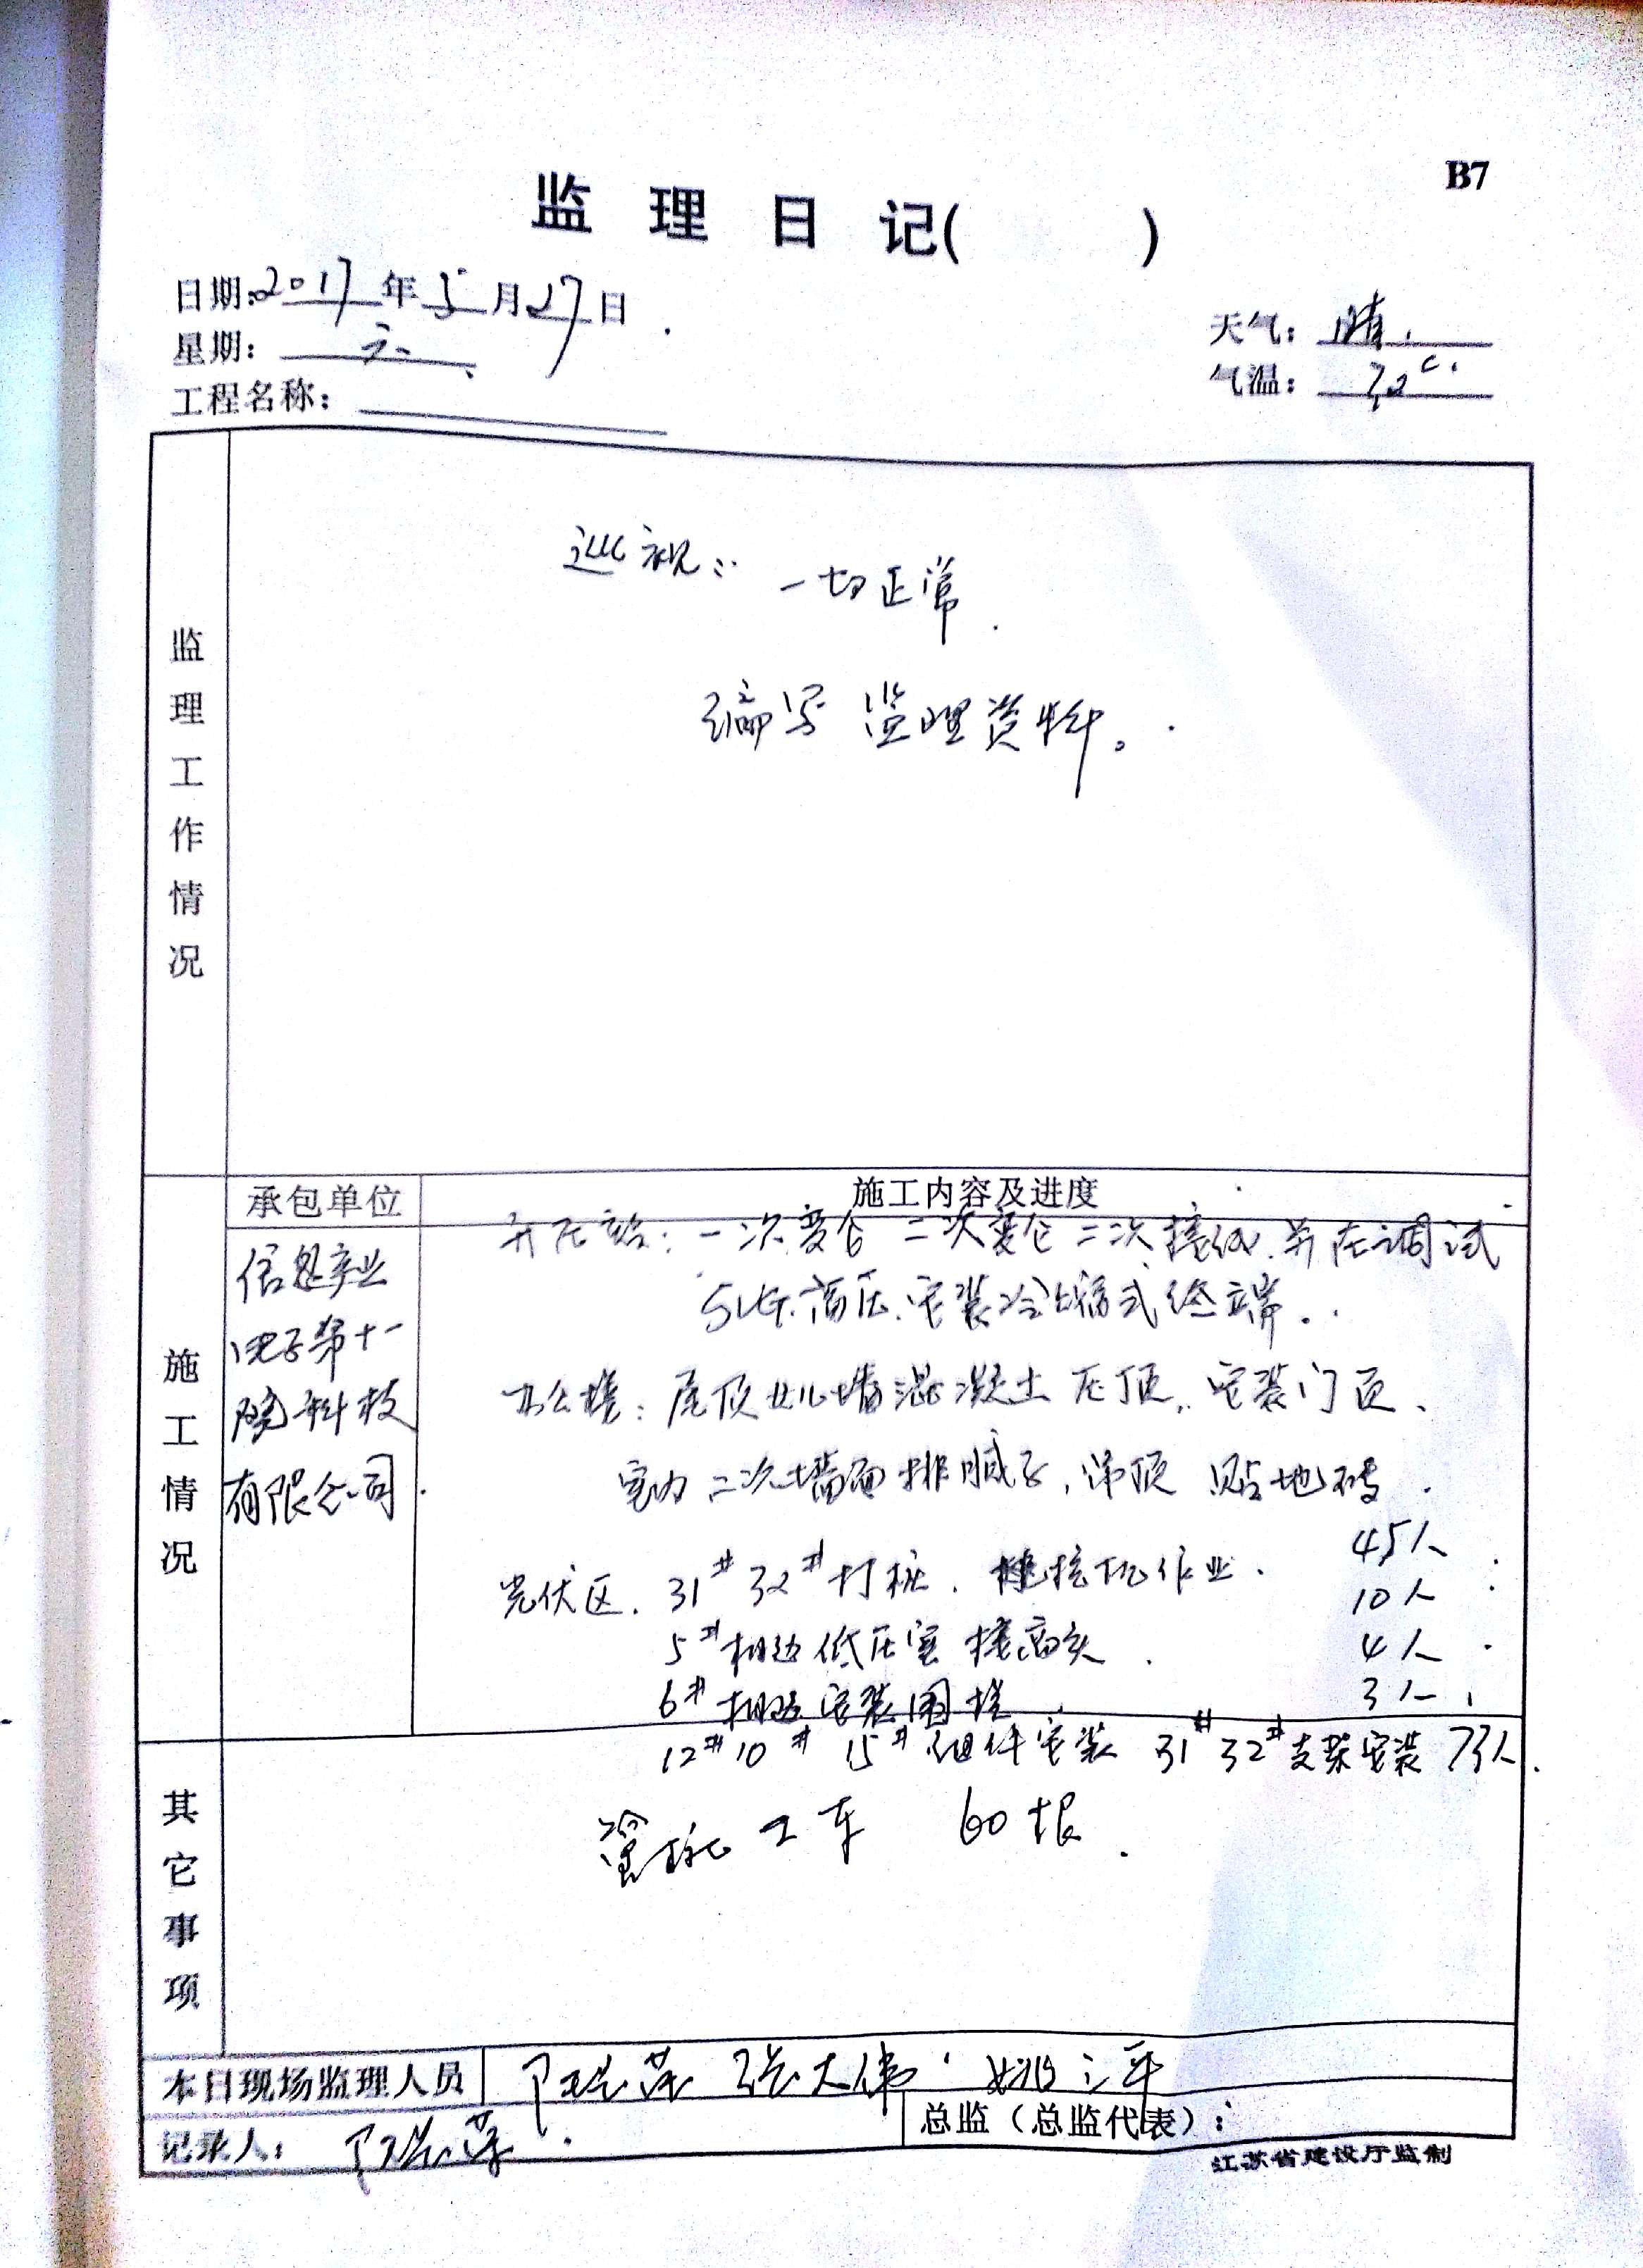 B7
监 理 日 记( )
日期:2017年5月27日
星期: 六
天气: 晴
工程名称:
气温:
监理工作情况
巡视: 一切正常.
编写 监理资料。
承包单位
施工内容及进度
施工情况
信息产业
电子第十一
院科技
有限公司.
升压站: 一次变仓 二次变仓 二次接线.升压调试
SVG.高压.安装冷缩式终端.
办公楼: 屋顶女儿墙混凝土压顶,安装门页、
室内二次墙面批腻子,吊顶 贴地砖.
45人
光伏区. 31# 32#打桩. 挖机作业.
10人
5#相边低压室 接高头.
4人
6#相边安装围栏
3人
12# 10# 15#组件安装 31# 32#支架安装 73人.
其它事项
管桩 2车 60根.
本日现场监理人员
张大伟
记录人:
总监(总监代表):
江苏省建设厅监制